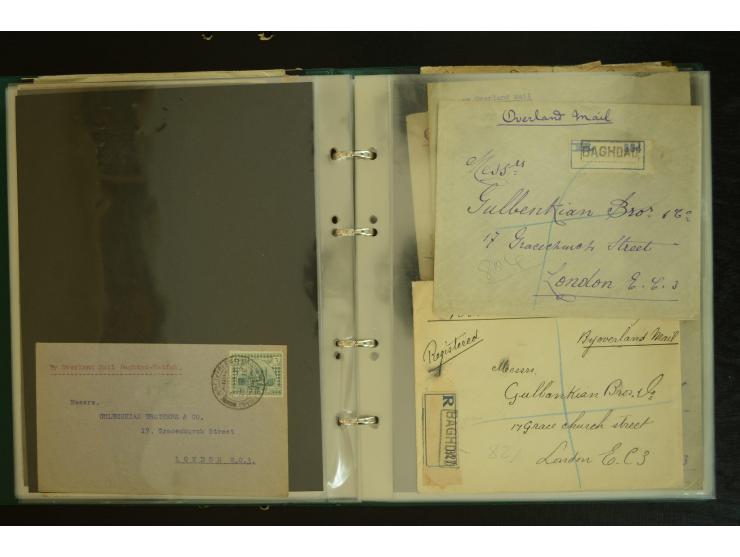 By Overland Mail Baghdad-Haifah.
Messrs.
GULBENKIAN BROTHERS & CO.
17, Gracechurch Street
LONDON E.C.3.
By Overland Mail
Overland Mail
BAGHDAD
Messrs
Gulbenkian Bros. & Co
17 Gracechurch Street
804
London E.C.3
Registered
By overland Mail
R
BAGHDAD
Messrs.
Gulbankian Bros. & Co
17 Grace church street
821
London E.C.3